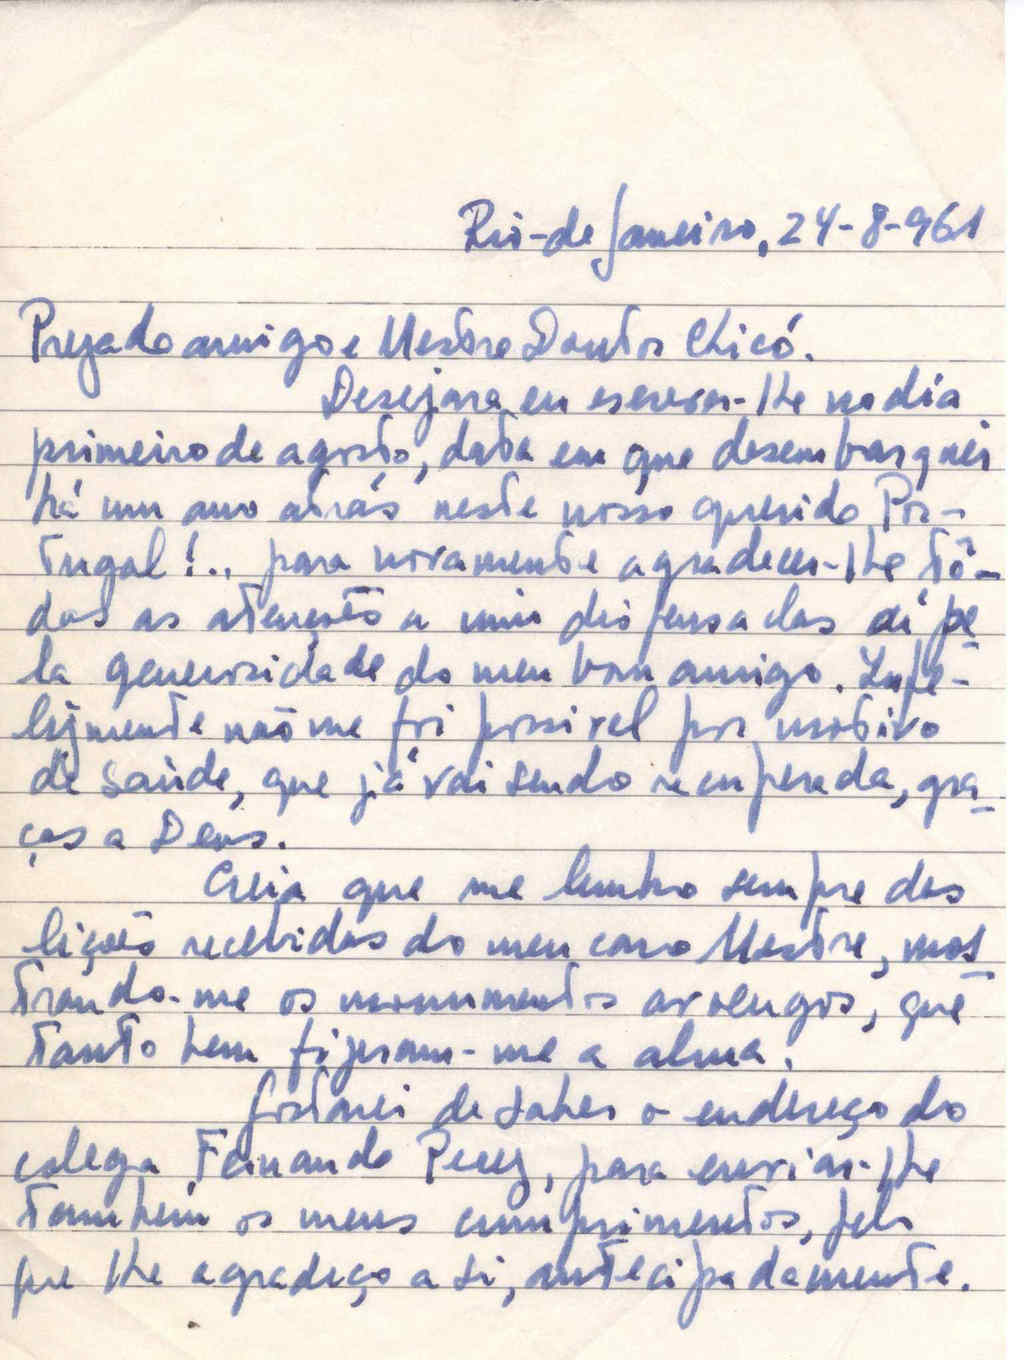 Rio-de Janeiro, 24-8-961
Prezado amigo e Mestre Doutor Chicó.
Desejara eu escrever-lhe no dia
primeiro de agosto, data em que desembarquei
há um ano atrás neste nosso querido Por-
tugal!.. para novamente agradecer-lhe tô-
das as atenções a mim dispensadas aí pe-
la generosidade do meu bom amigo. Infe-
lizmente não me foi possivel por motivo
de saúde, que já vai sendo recuperada, gra-
ças a Deus.
Creia que me lembro sempre das
lições recebidas do meu caro Mestre, mos-
trando-me os monumentos avoengos, que
tanto bem fizeram-me a alma.
Gostarei de saber o endereço do
colega Fernando Perez, para enviar-lhe
tambem os meus cumprimentos, pelo
que lhe agradeço a si, antecipadamente.